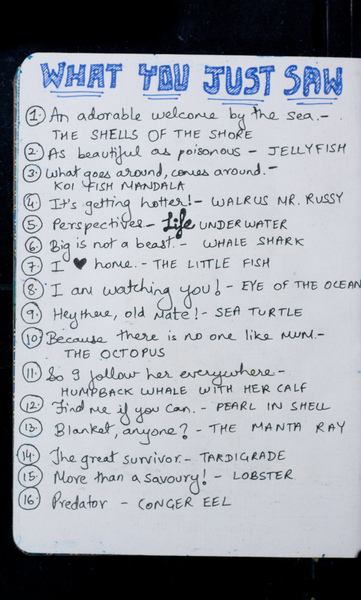 WHAT YOU JUST SAW
1. An adorable welcome by the sea.-
THE SHELLS OF THE SHORE
2. As beautiful as poisonous - JELLYFISH
3. What goes around, comes around.-
KOI FISH MANDALA
4. It's getting hotter! - WALRUS MR. RUSSY
5. Perspectives - Life UNDERWATER
6. Big is not a beast. - WHALE SHARK
7. I ♥ home. - THE LITTLE FISH
8. I am watching you! - EYE OF THE OCEAN
9. Hey there, old Mate! - SEA TURTLE
10. Because there is no one like Mum.-
THE OCTOPUS
11. So I follow her everywhere -
HUMPBACK WHALE WITH HER CALF
12. Find me if you can. - PEARL IN SHELL
13. Blanket, anyone? - THE MANTA RAY
14. The great survivor. - TARDIGRADE
15. More than a savoury! - LOBSTER
16. Predator - CONGER EEL